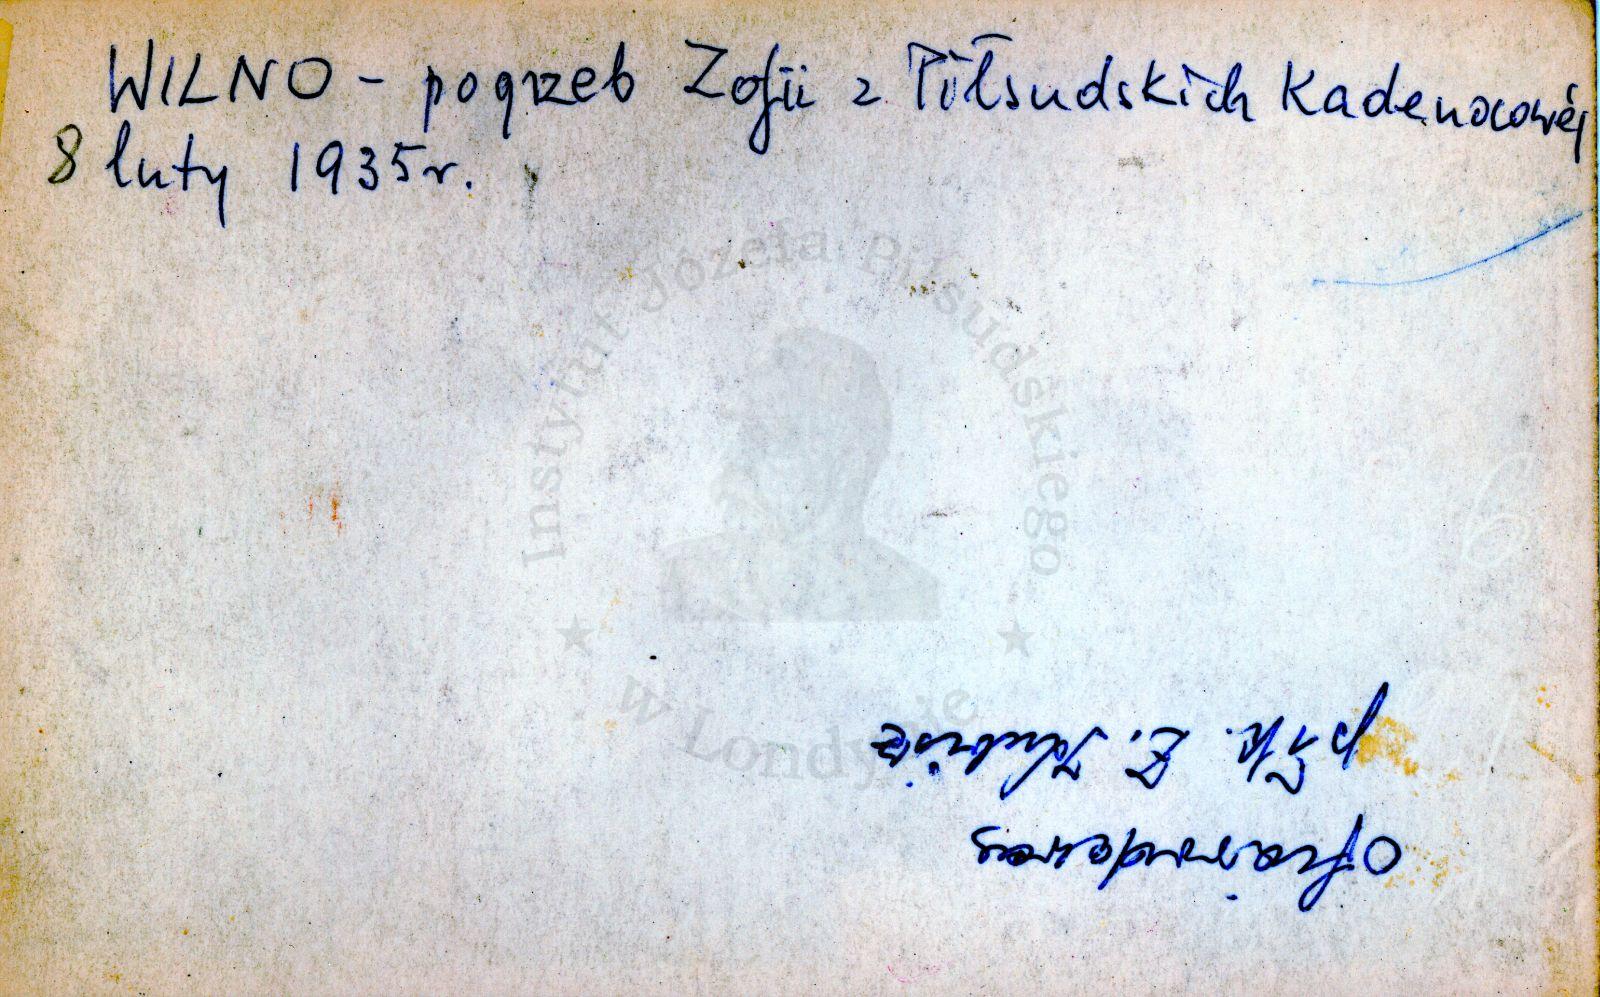 WILNO – pogrzeb Zofii z Piłsudskich Kadenocowéj
8 luty 1935r.
Instytut Józefa Piłsudskiego
w Londynie
ofiarodawca
płk. Z.